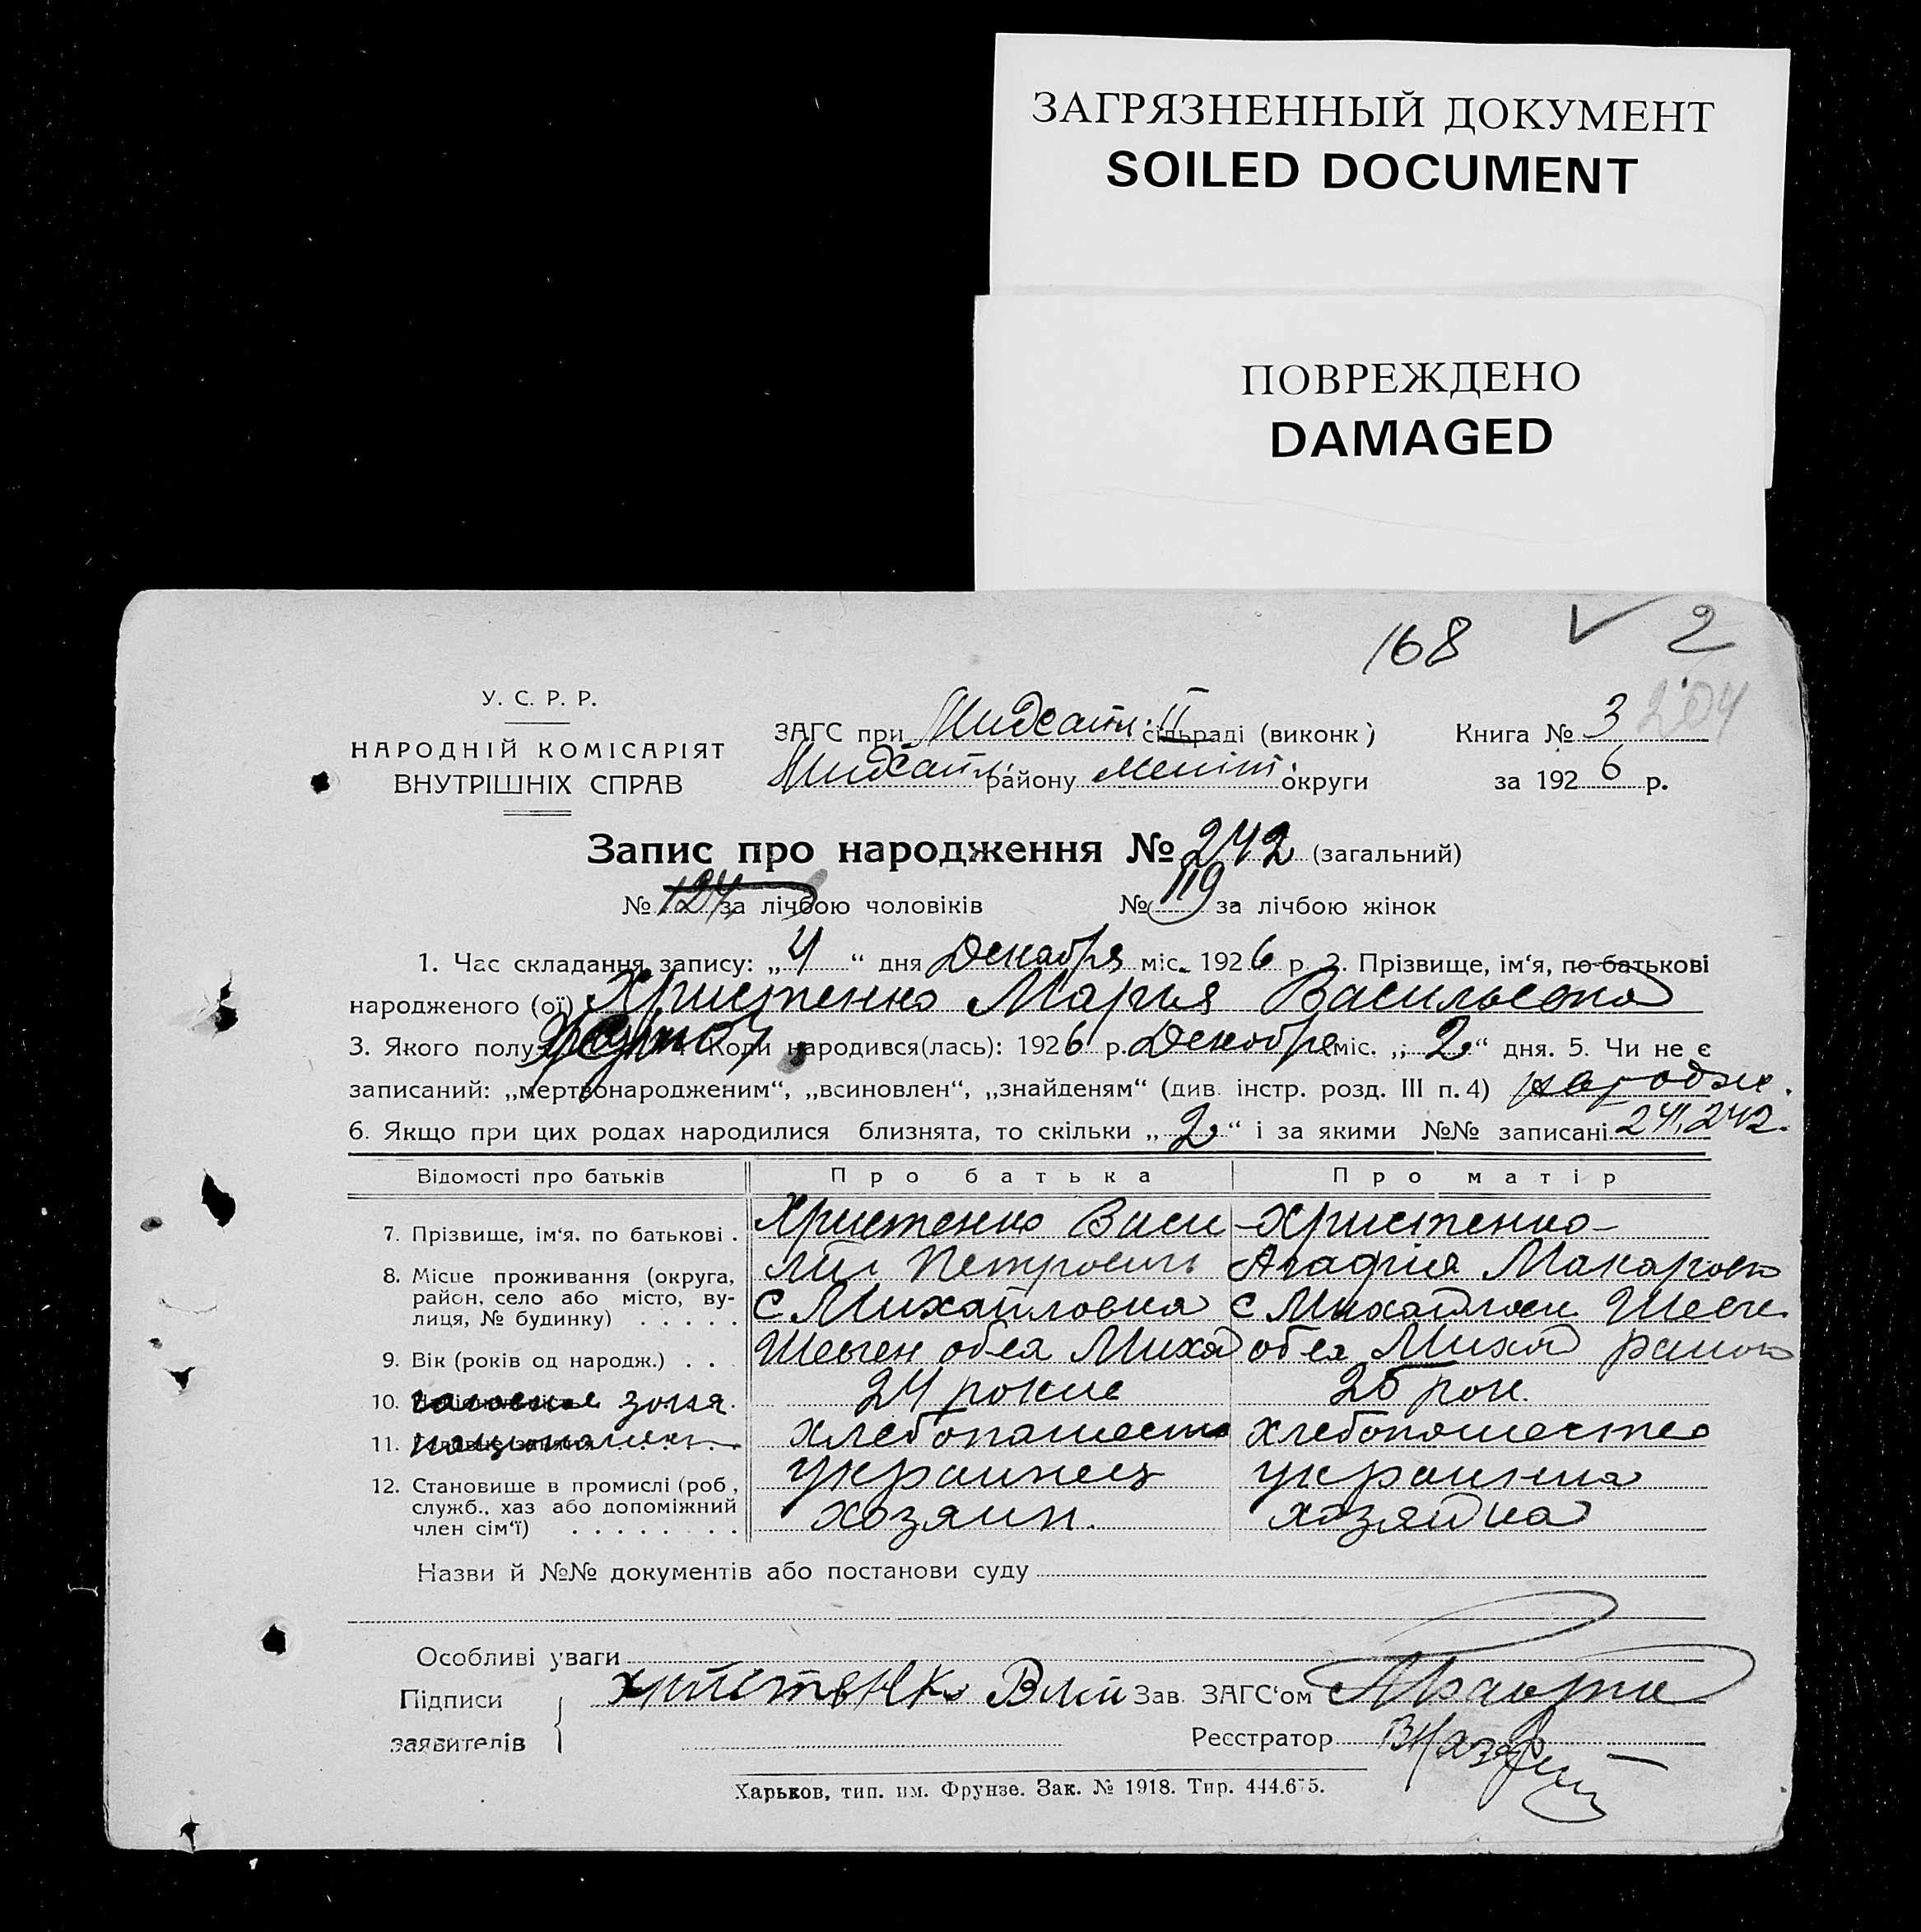 ЗАГРЯЗНЕННЫЙ ДОКУМЕНТ
SOILED DOCUMENT
ПОВРЕЖДЕНО
DAMAGED
168 2
204
У. С. Р. Р.
НАРОДНІЙ КОМІСАРІЯТ
ВНУТРІШНІХ СПРАВ
ЗАГС при сільраді (виконк)
району округи
Книга № 3
за 1926 р.
Запис про народження № 242 (загальний)
№ 124 за лічбою чоловіків № 119 за лічбою жінок
1. Час складання запису: „4“ дня Декабря міс. 1926 р. 2. Прізвище, ім‘я, по-батькові
народженого (ої) Христенко Мария Васильевна
3. Якого полу Коли народився(лась): 1926 р. Декабря міс. „2“ дня. 5. Чи не є
записаний: „мертвонародженим“, „всиновлен“, „знайденям“ (див. інстр. розд. III п. 4) народж.
6. Якщо при цих родах народилися близнята, то скільки „2“ і за якими №№ записані 241, 242.
Відомості про батьків Про батька Про матір
7. Прізвище, ім‘я, по батькові . Христенко Васи Христенко
8. Місце проживання (округа, район, село або місто, вулиця, № будинку) . . . . . лий Петрович Агафия Макаров
С Михайловка С
9. Вік (років од народж.) . . 24 25 рок.
10.
11. хлебопашество хлебопашество
украинец украинка
12. Становище в промислі (роб., служб., хаз або допоміжний член сім‘ї) . . . . . . . . хозяин. хозяйка
Назви й №№ документів або постанови суду
Особливі уваги
Підписи
заявителів
Зав. ЗАГС‘ом
Реєстратор
Харьков, тип. им. Фрунзе. Зак. № 1918. Тир. 444.675.